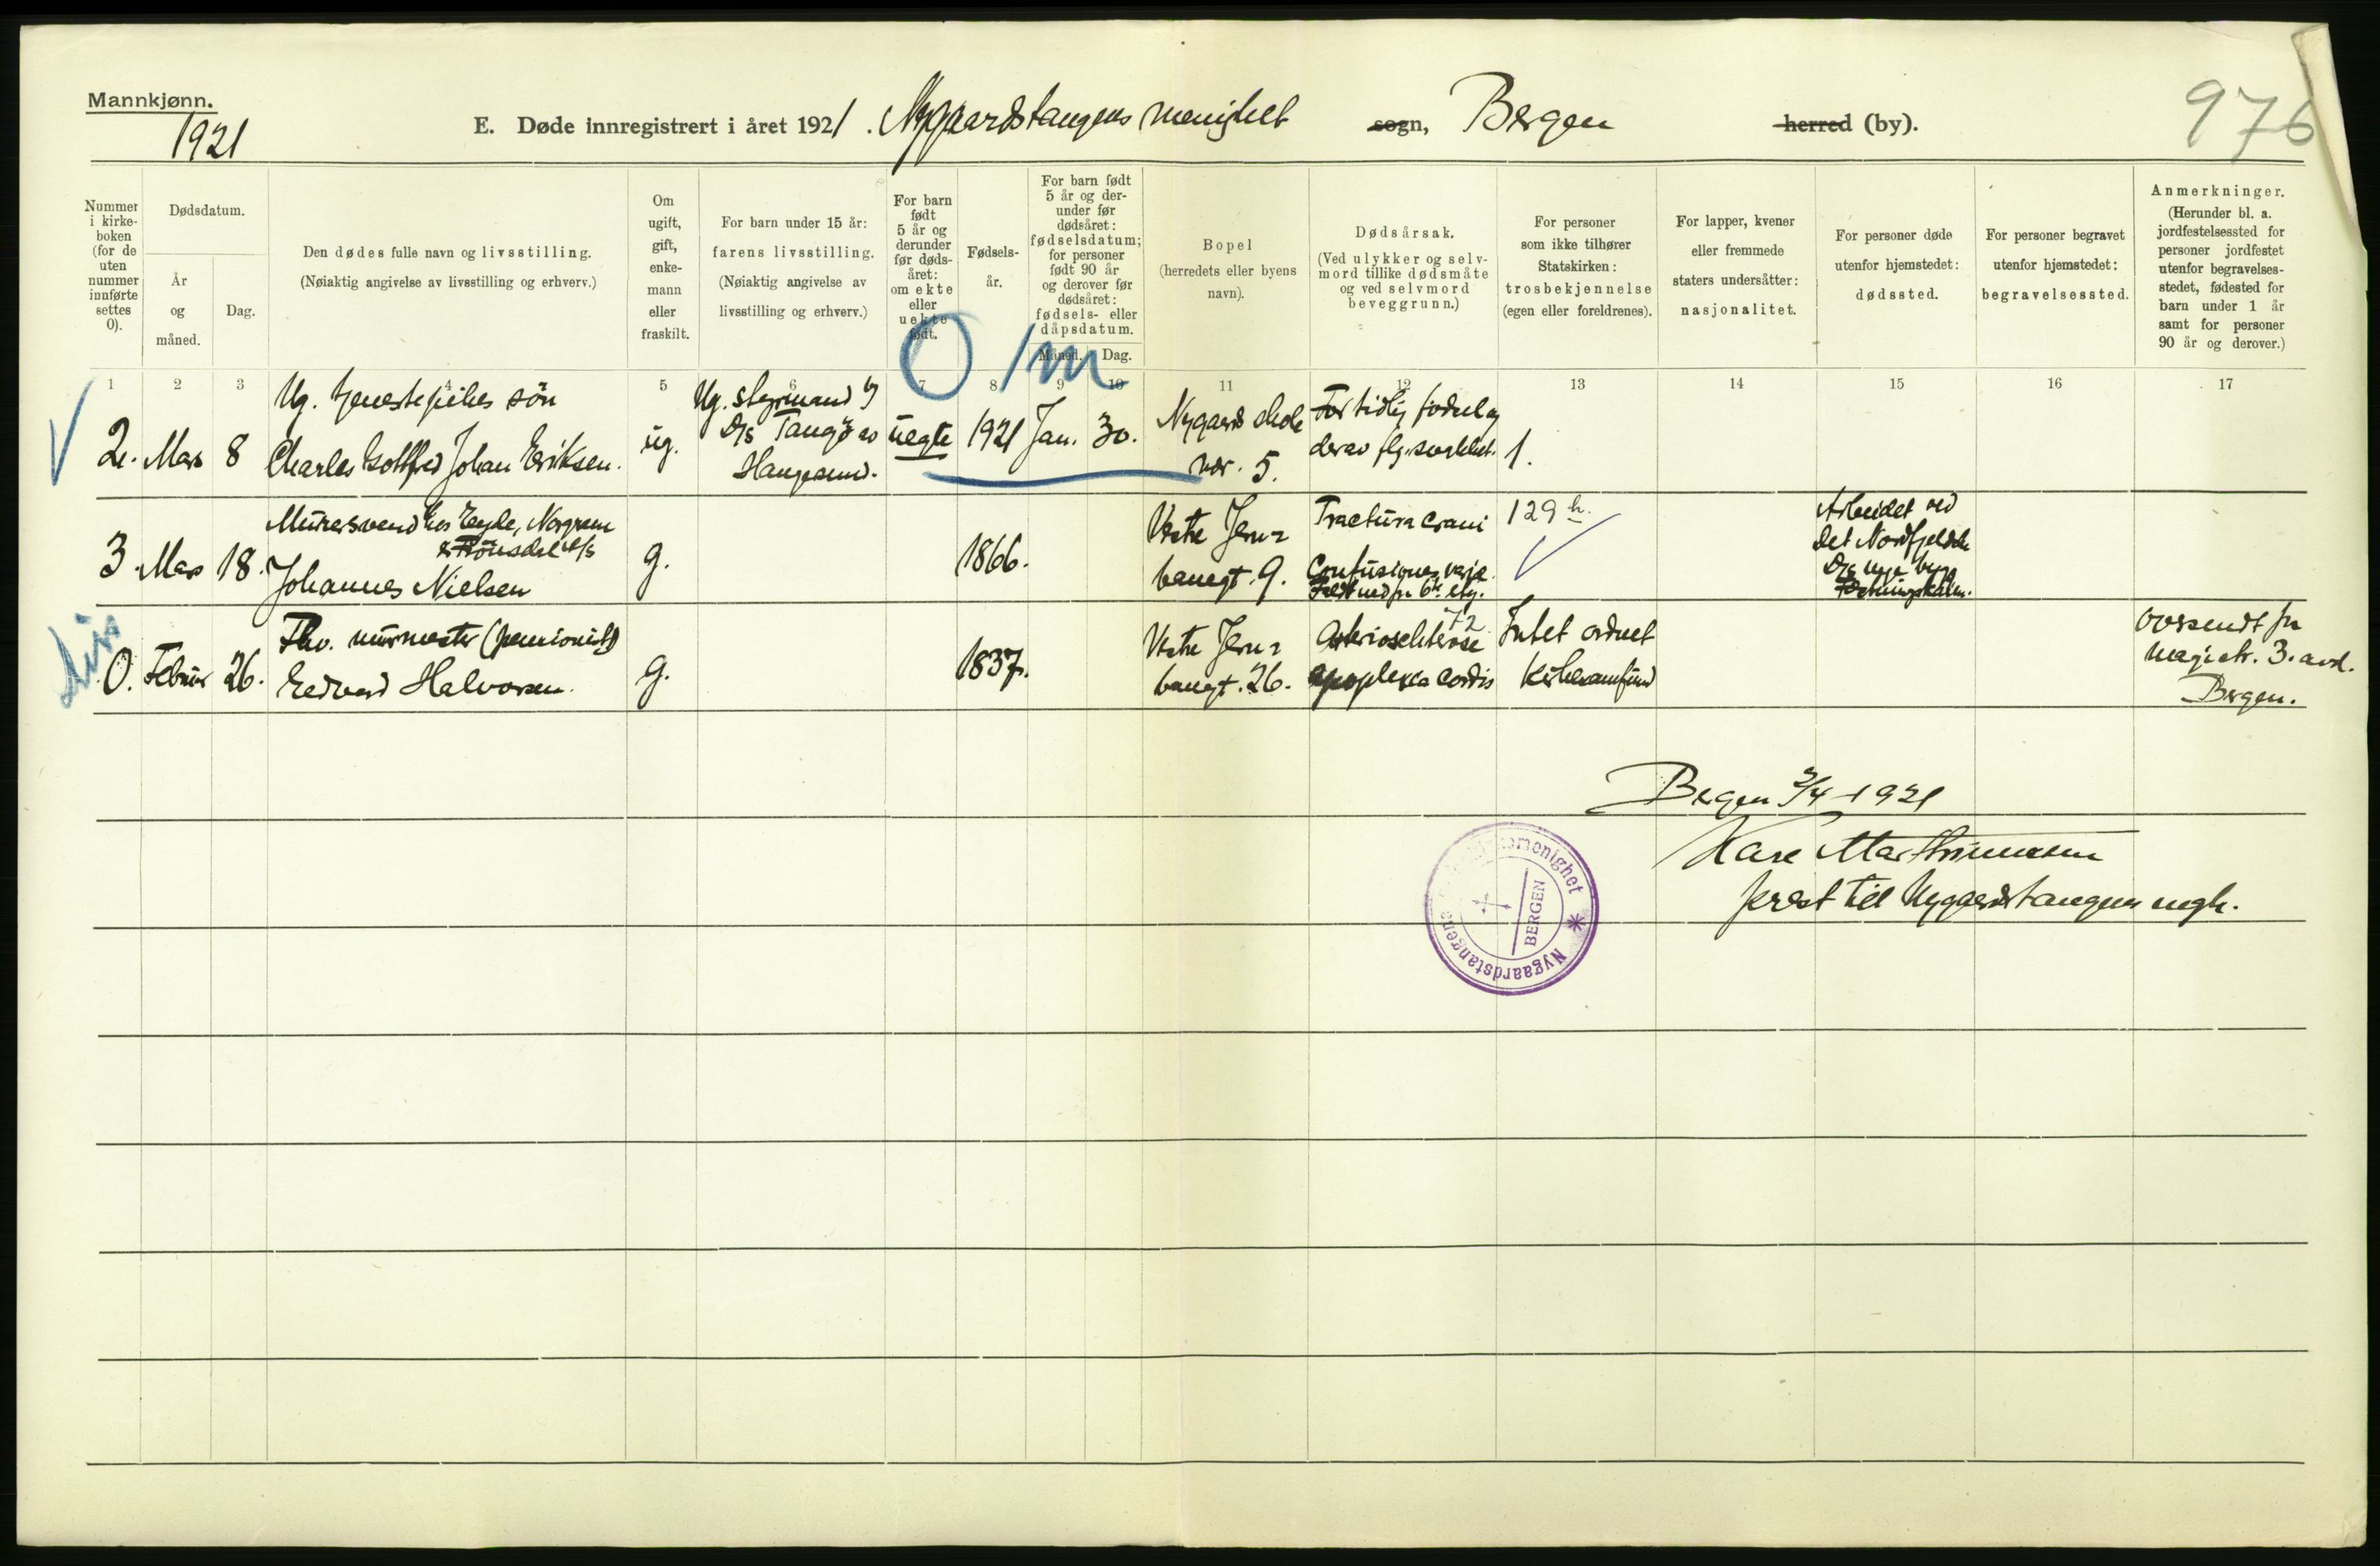 Mannkjønn.
1921
E. Døde innregistrert i året 1921. Nygaardstangens menighet sogn, Bergen herred (by).
976
Nummer i kirkeboken (for de uten nummer innførte settes 0).
Dødsdatum.
År og måned.
Dag.
Den dødes fulle navn og livsstilling.
(Nøiaktig angivelse av livsstilling og erhverv.)
Om ugift, gift, enkemann eller fraskilt.
For barn under 15 år:
farens livsstilling.
(Nøiaktig angivelse av livsstilling og erhverv.)
For barn født 5 år og derunder før dødsåret: om ekte eller uekte født.
Fødselsår.
For barn født 5 år og derunder før dødsåret: fødselsdatum; for personer født 90 år og derover før dødsåret: fødsels- eller dåpsdatum.
Måned. Dag.
Bopel
(herredets eller byens navn).
Dødsårsak.
(Ved ulykker og selvmord tillike dødsmåte og ved selvmord beveggrunn.)
For personer som ikke tilhører Statskirken: trosbekjennelse (egen eller foreldrenes).
For lapper, kvener eller fremmede staters undersåtter: nasjonalitet.
For personer døde utenfor hjemstedet: dødssted.
For personer begravet utenfor hjemstedet: begravelsessted.
Anmerkninger.
(Herunder bl. a. jordfestelsessted for personer jordfestet utenfor begravelsesstedet, fødested for barn under 1 år samt for personer 90 år og derover.)
0/m
1 2 3 4 5 6 7 8 9 10 11 12 13 14 15 16 17
2. Mars 8
Ug. tjenestepikes sön
Charles Gottfred Johan Eriksen.
ug.
Ug. styrmand
D/s Tangö av
Haugesund.
uegte
1921 Jan. 30.
Nygaards skole
nor. 5.
For tidlig födsel og
derav flg. svakhet.
1.
3. Mars 18.
Murersvend hos Eyde, Norgreen
Johannes Nielsen
g.
1866.
Vestre Jern=
banegt. 9.
Fractura crani
129 h.
Arbeidet ved
Det Nordfjeldske
D/s nye bygg
Festningskaien.
0. Februar 26.
Fhv. murmester (pensionist)
Edvard Halvorsen.
g.
1837.
Vestre Jern=
banegt. 26.
72
Arteriosklerose
apoplexia cordis
Intet ordnet
Kirkesamfund
oversendt fra
magistr. 3. avd.
Bergen.
Bergen 2/4 1921
prest til Nygaardstangens mgh.
Nygaardstangens menighet
BERGEN